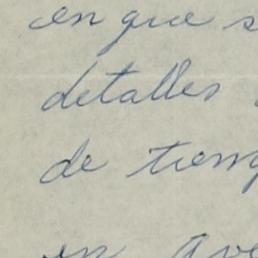 en que s
detalles
de tiem
en ave